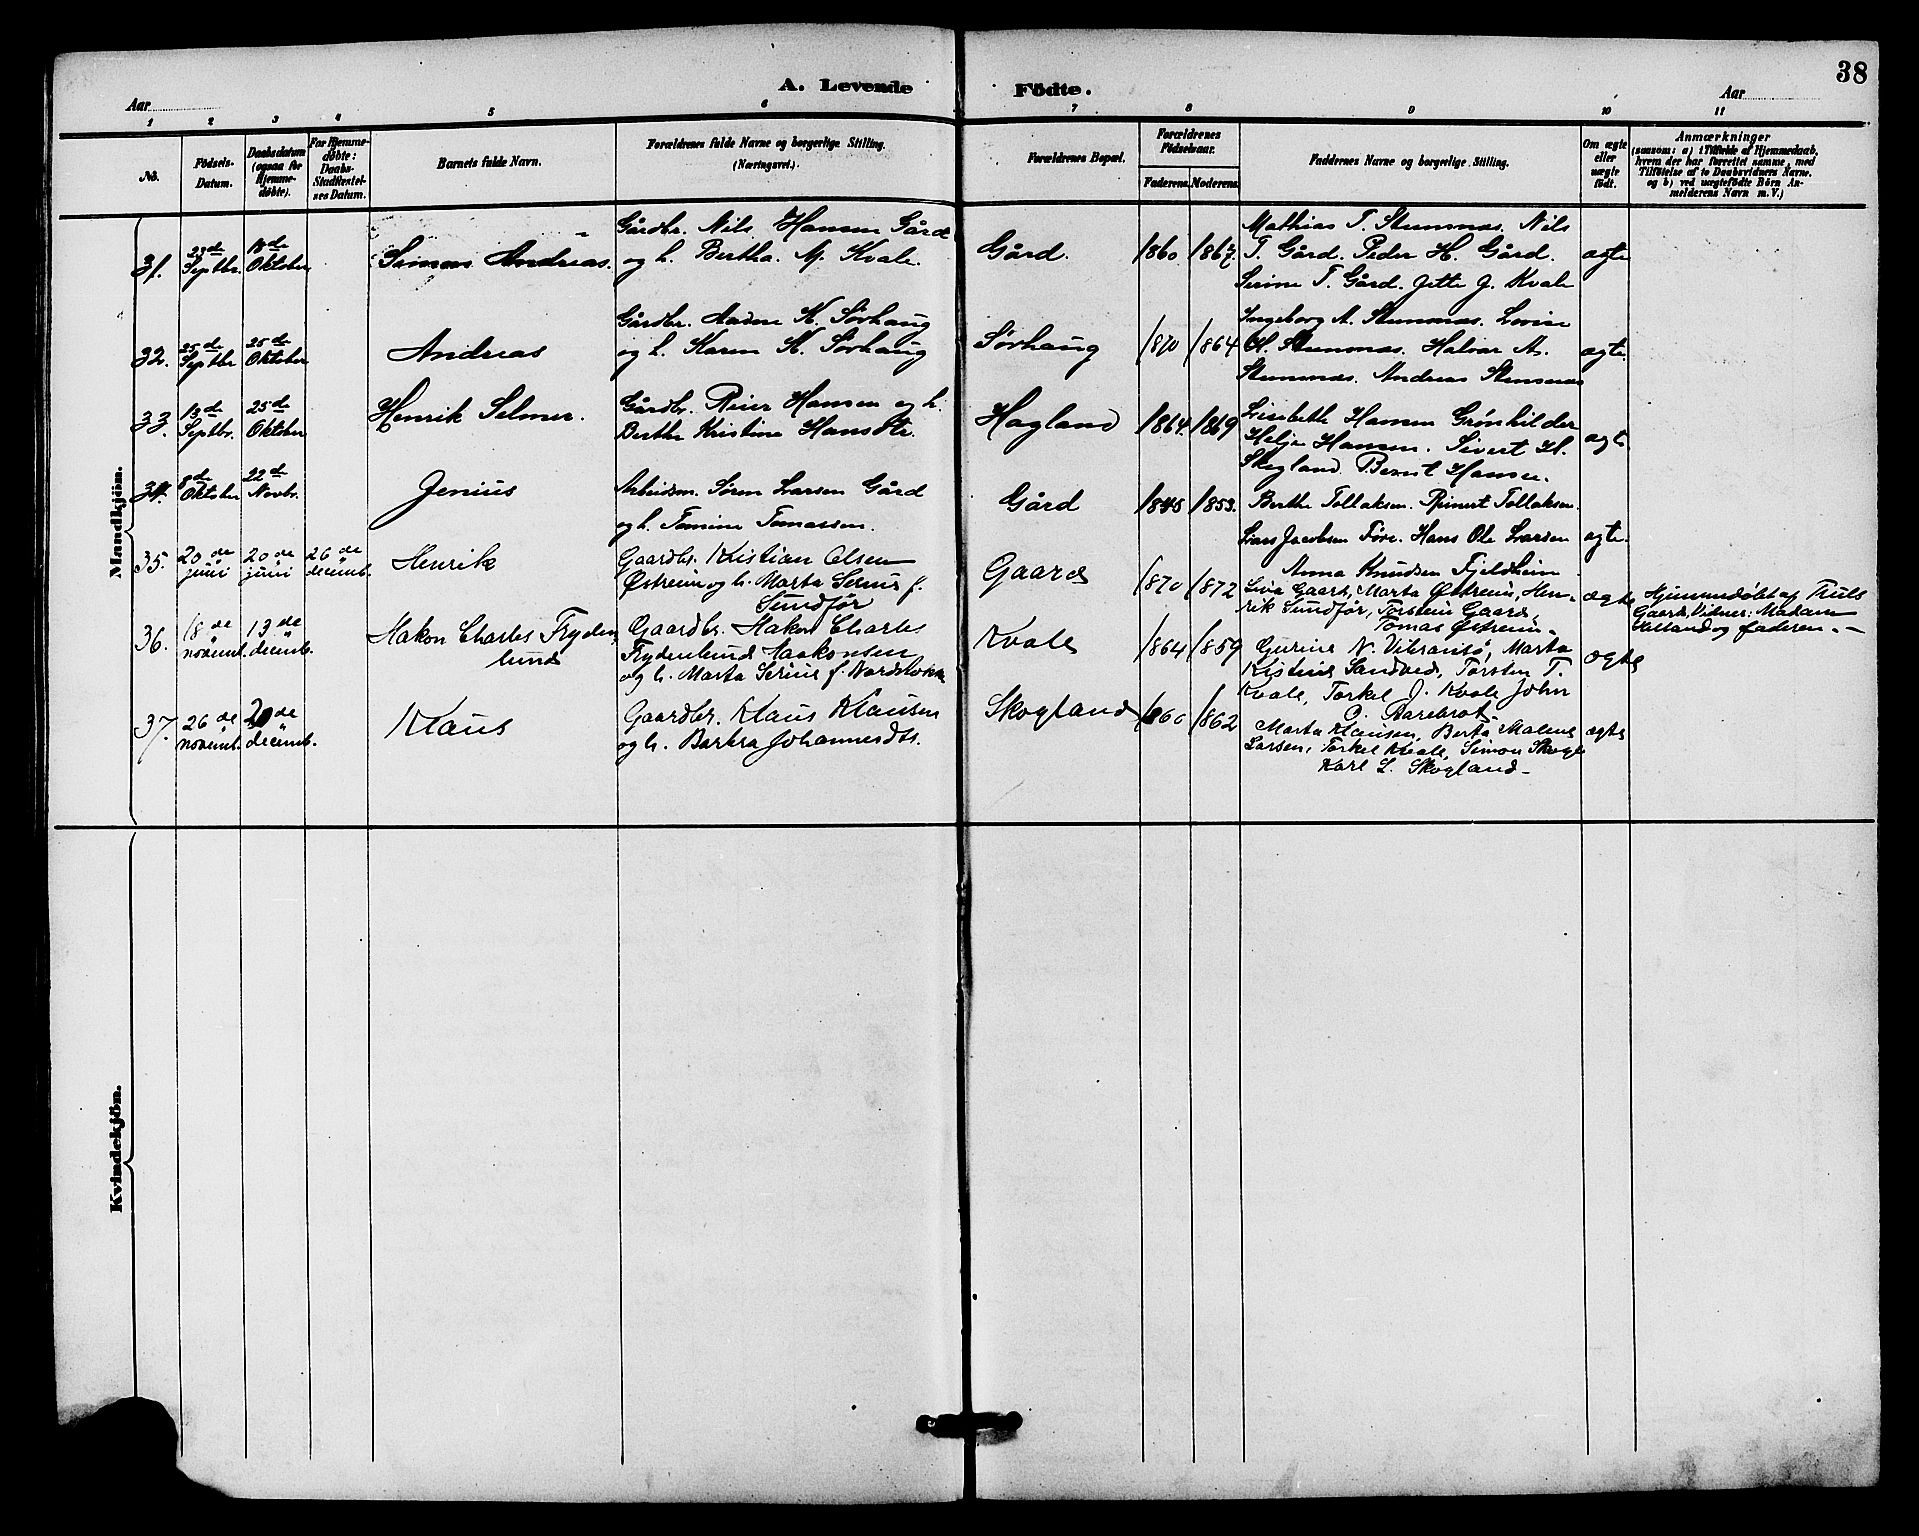 38
A. Levende Födte.
Aar
Aar
1 2 3 4 5 6 7 8 9 10 11
No.
Födsels-Datum.
Daabsdatum (ogsaa for Hjemme-døbte).
For Hjemme-døbte: Daabs-Stadfæstel-ses Datum.
Barnets fulde Navn.
Forældrenes fulde Navne og borgerlige Stilling.
(Næringsvei.)
Forældrenes Bopæl.
Forældrenes Födselsaar.
Faderens. Moderens.
Faddernes Navne og borgerlige Stilling.
Om ægte eller uægte födt.
Anmærkninger
(saasom: a) i Tilfælde af Hjemmedaab,
hvem der har forrettet samme, med
Tilföielse af to Daabsvidners Navne.
og b) ved uægtefödte Börn An-
melderens Navn m. V.)
Mandkjön.
31. Septbr. Oktober Andreas.
Gårdbr. Nils Hansen Gård
og h. Bertha M. Kvale
Gård. 1860. 1867.
Mathias T. Stumnæs. Nils
T. Gård. Peder H. Gård.
Serine T. Gård. Jette J. Kvale
ægte
32. 25de Septbr 25de Oktober Andreas
Gårdbr. K. Sørhaug
og h. Karen K. Sørhaug
Sørhaug 1870 1864
Ingeborg A. Stumnæs. Lovise
H. Stumnæs. Halvar A.
Stumnæs. Andreas Stumnæs
ægte.
33. 13de Septbr. 25de Oktober Henrik Selmer.
Gårdbr. Reier Hansen og h.
Berthe Kristine Hansdtr.
Hagland 1864. 1869
Lisebeth Hansen Grønhilder
Helje Hansen. Sivert H.
Skogland. Bernt Hansen.
ægt
34. 8de Oktober 22de Novbr. Jenius
Arbeidsm. Søren Larsen Gård
og h. Tomine Tomassen.
Gård 1845 1853.
Berthe Tollaksen. Reinert Tollaksen
Lars Jacobsen Føre. Hans Ole Larsen
ægte.
35. 20de juni 20de juni 26de decemb. Henrik
Gaardbr. Kristian Olsen
Østreim og h. Marta Serine f.
Sundför
Gaard 1870 1872
Anna Knudsen Fjeldheim
Liva Gaard, Marta Østreim, Hen-
rik Sundför, Torstein Gaard,
Tomas Østreim.
ægte
Hjemmedøbt af Truls
Gaard, Vidner: Madam
Valland og faderen.-
36. 18de novemb. 13de decemb. Hakon Charles Fryden
lund
Gaardbr. Hakon Charles
Frydenlund Haakonsen
og h. Marta Serine f. Nordstokke
Kvale 1864 1859
Gurine N. Vibransö, Marta
Kistine Sandved, Torsten T.
Kvale, Torkel J. Kvale John
O. Aarebrot.
ægte
37. 26de novemb. 20de decemb. Klaus
Gaardbr. Klaus Klausen
og h. Barbra Johannesdtr.
Skogland 1860 1862
Marta Klausen, Berta Malene
Larsen, Torkel Kvale, Simon Skogl
Karl L. Skogland.-
ægte
Kvindekjön.